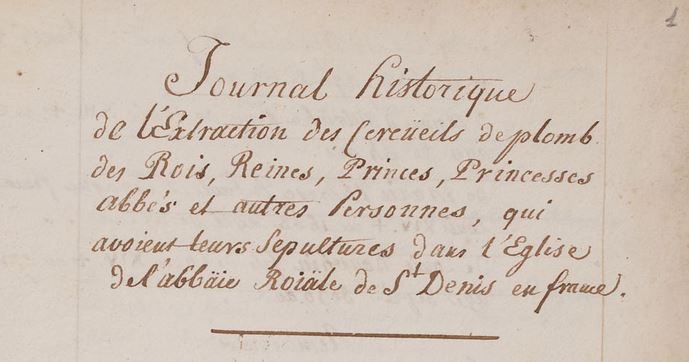 1
Journal historique
de l'Extraction des Cercüeils de plomb
des Rois, Reines, Princes, Princesses
abbés et autres Personnes, qui
avoient leurs Sepultures dans l'Eglise
de l'abbäie Roiäle de St Denis en france.